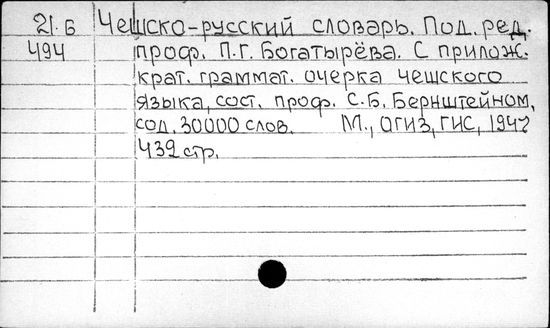 21.6 Чешско-русский словарь. Под. ред.
494 проф. П.Г. Богатырёва. С прилож.
крат. граммат. очерка чешского
языка, сост. проф. С.Б. Бернштейном,
сод. 30000 слов. М., ОГИЗ, ГИС, 1947
439 стр.